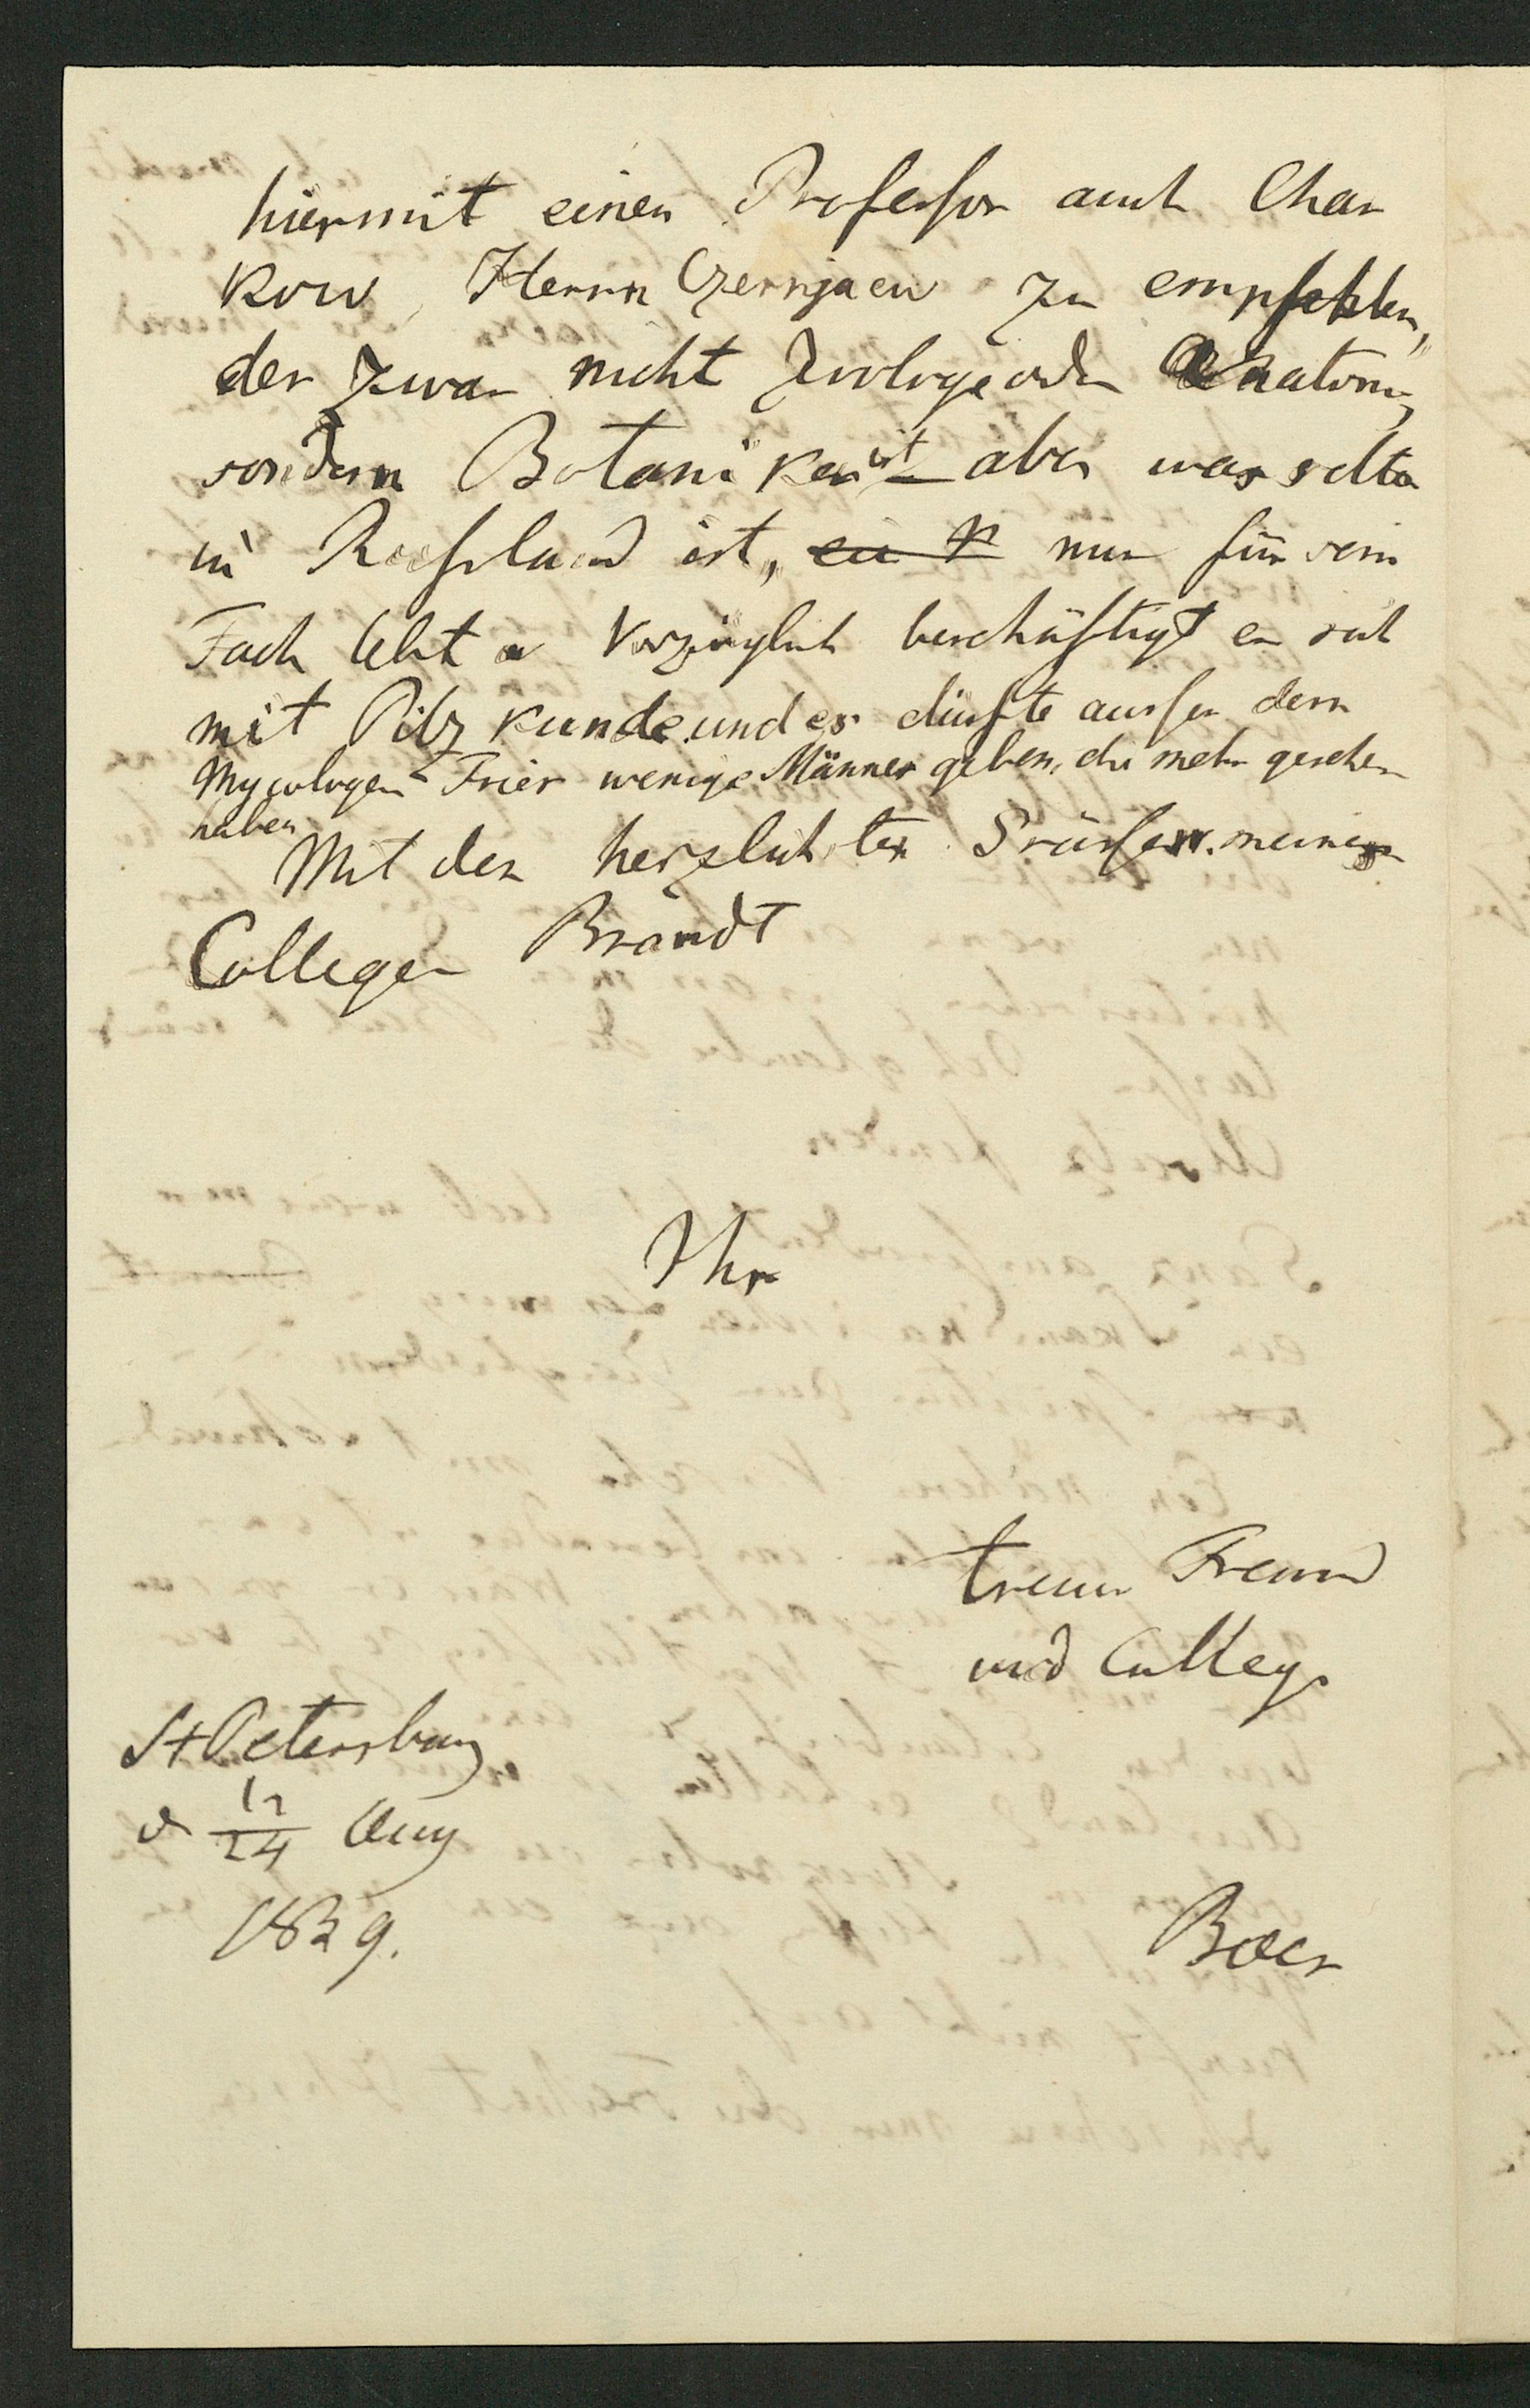 hiermit einen Professor auch Char
kow, Herrn Czernjaew zu empfehlen,
der zwar nicht Zoologe oder Anatom,
sondern Botaniker ist aber was selten
in Russland ist, nur für sein
Fach lebt Vorzüglich beschäftigt er sich
mit Pilzkunde und es dürfte ausser dem
Mycologen Fries wenige Männer geben, die mehr gesehen
haben
Mit den herzlichsten Grüssen meines
Collegen Brandt
Ihr
treuer Freund
und College
St Petersburg
d 12/24 Aug
1839.
Baer